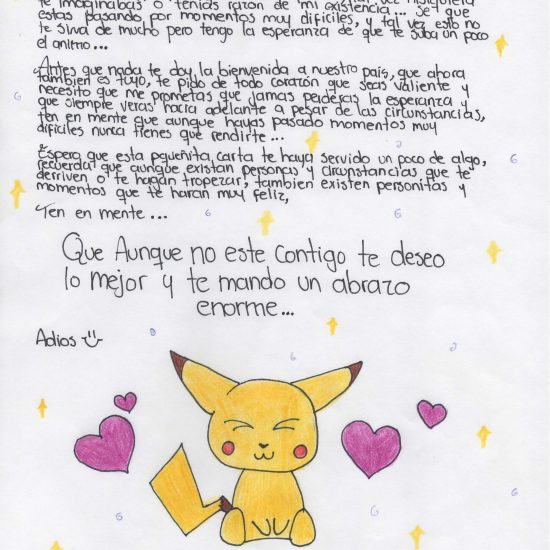 te imaginabas o tenias razon de mi existencia... se que
estas pasando por momentos muy dificiles, y tal vez esto no
te sirva de mucho pero tengo la esperanza de que te suba un poco
el animo...
Antes que nada te doy la bienvenida a nuestro país, que ahora
tambien es tuyo, te pido de todo corazón que seas valiente y
necesito que me prometas que jamas perderas la esperanza y
que siempre veras hacia adelante a pesar de las circunstancias,
ten en mente que aunque hayas pasado momentos muy
dificiles nunca tienes que rendirte...
Espero que esta pqueñita carta te haya servido un poco de algo,
recuerda que aunque existan personas y circunstancias que te
derriven o te hagan tropezar, tambien existen personitas y
momentos que te haran muy feliz,
Ten en mente...
Que Aunque no este contigo te deseo
lo mejor y te mando un abrazo
enorme...
Adios